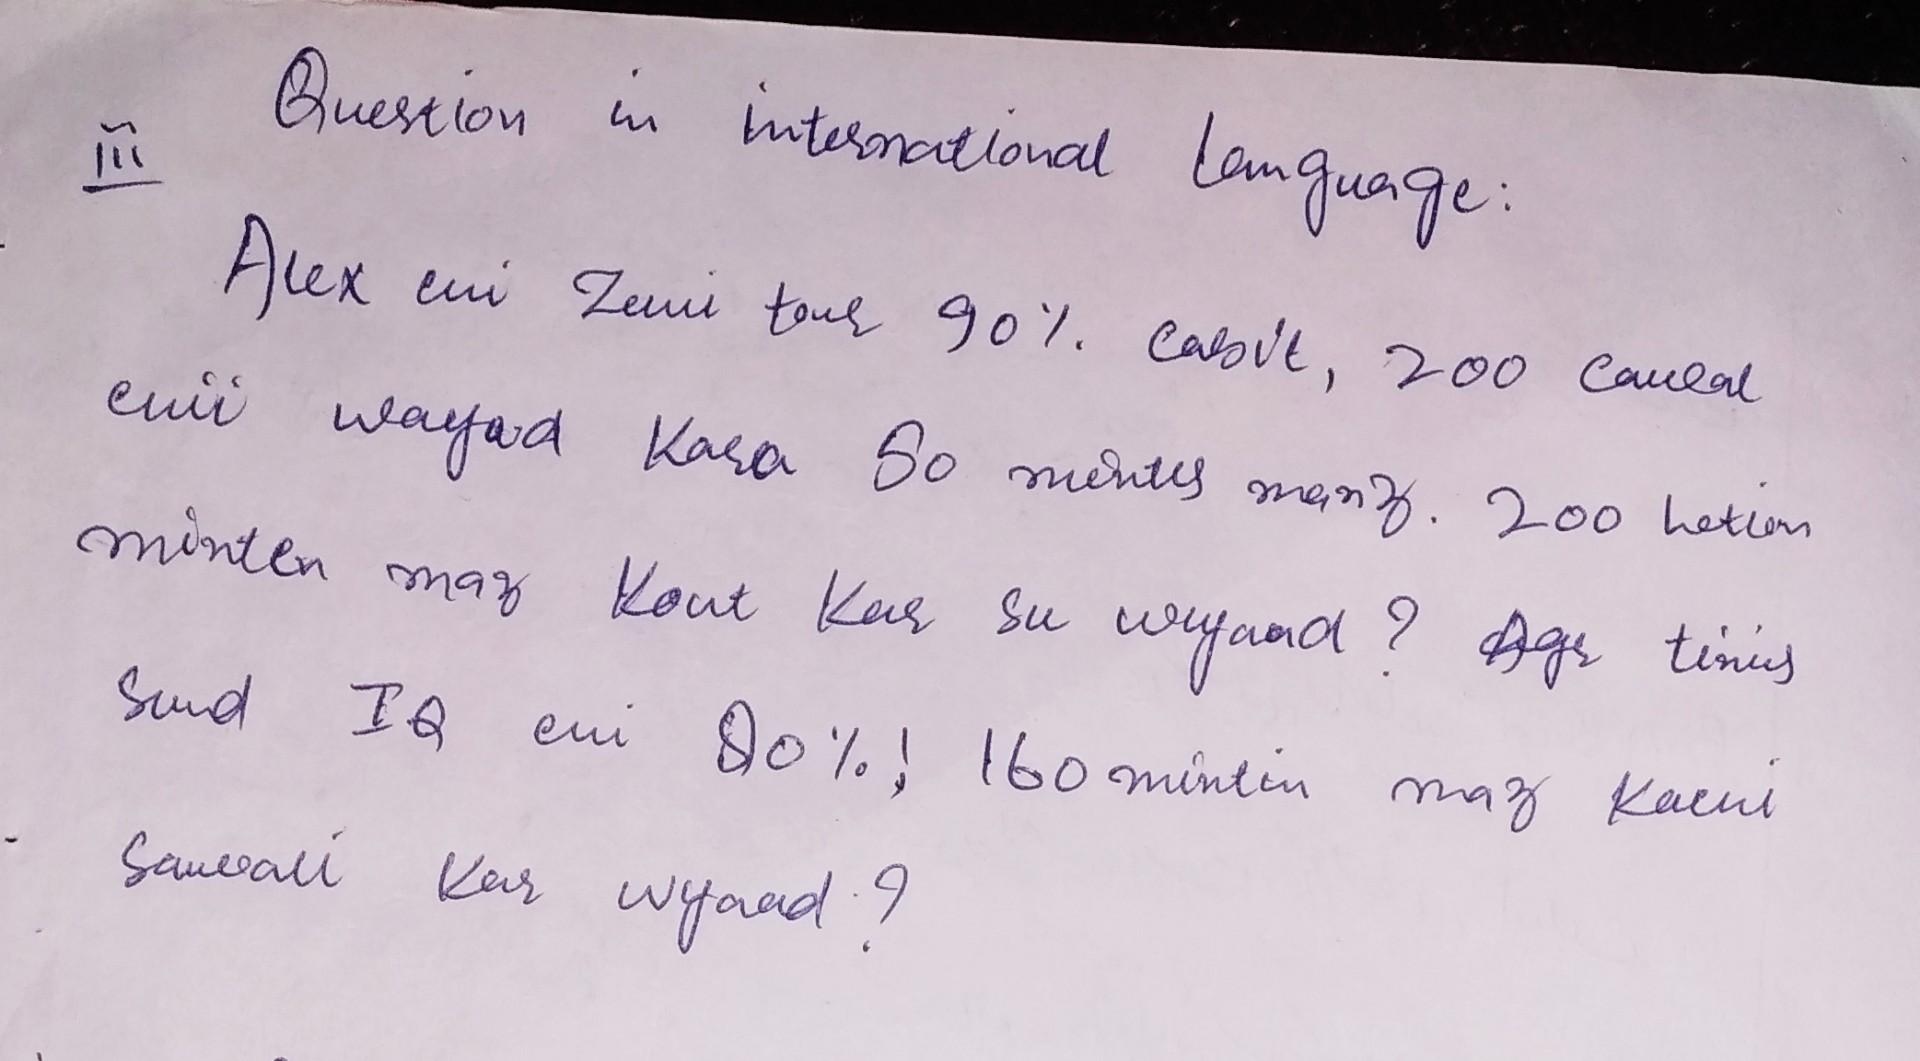 iii Question in international Language:
Alex cui Zeni tour 90%. cabit, 200 caueal
cuii wayad Kara 50 mintes manz. 200 hetion
minten maz Kout Kar su wyaad? Agr tinis
Sund IQ cui 90%! 160 mintin maz Kaeni
Saweali Kar wyaad?